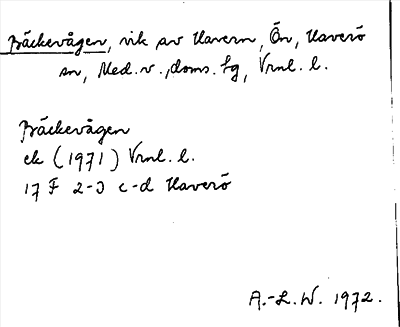 Bäckevågen, vik av Havern, Ön, Haverö
sn, Med. v., doms. fg, Vrnl. l.
Bäckevågen
ek (1971) Vrnl. l.
17 F 2-3 c-d Haverö
A.-L. W. 1972.